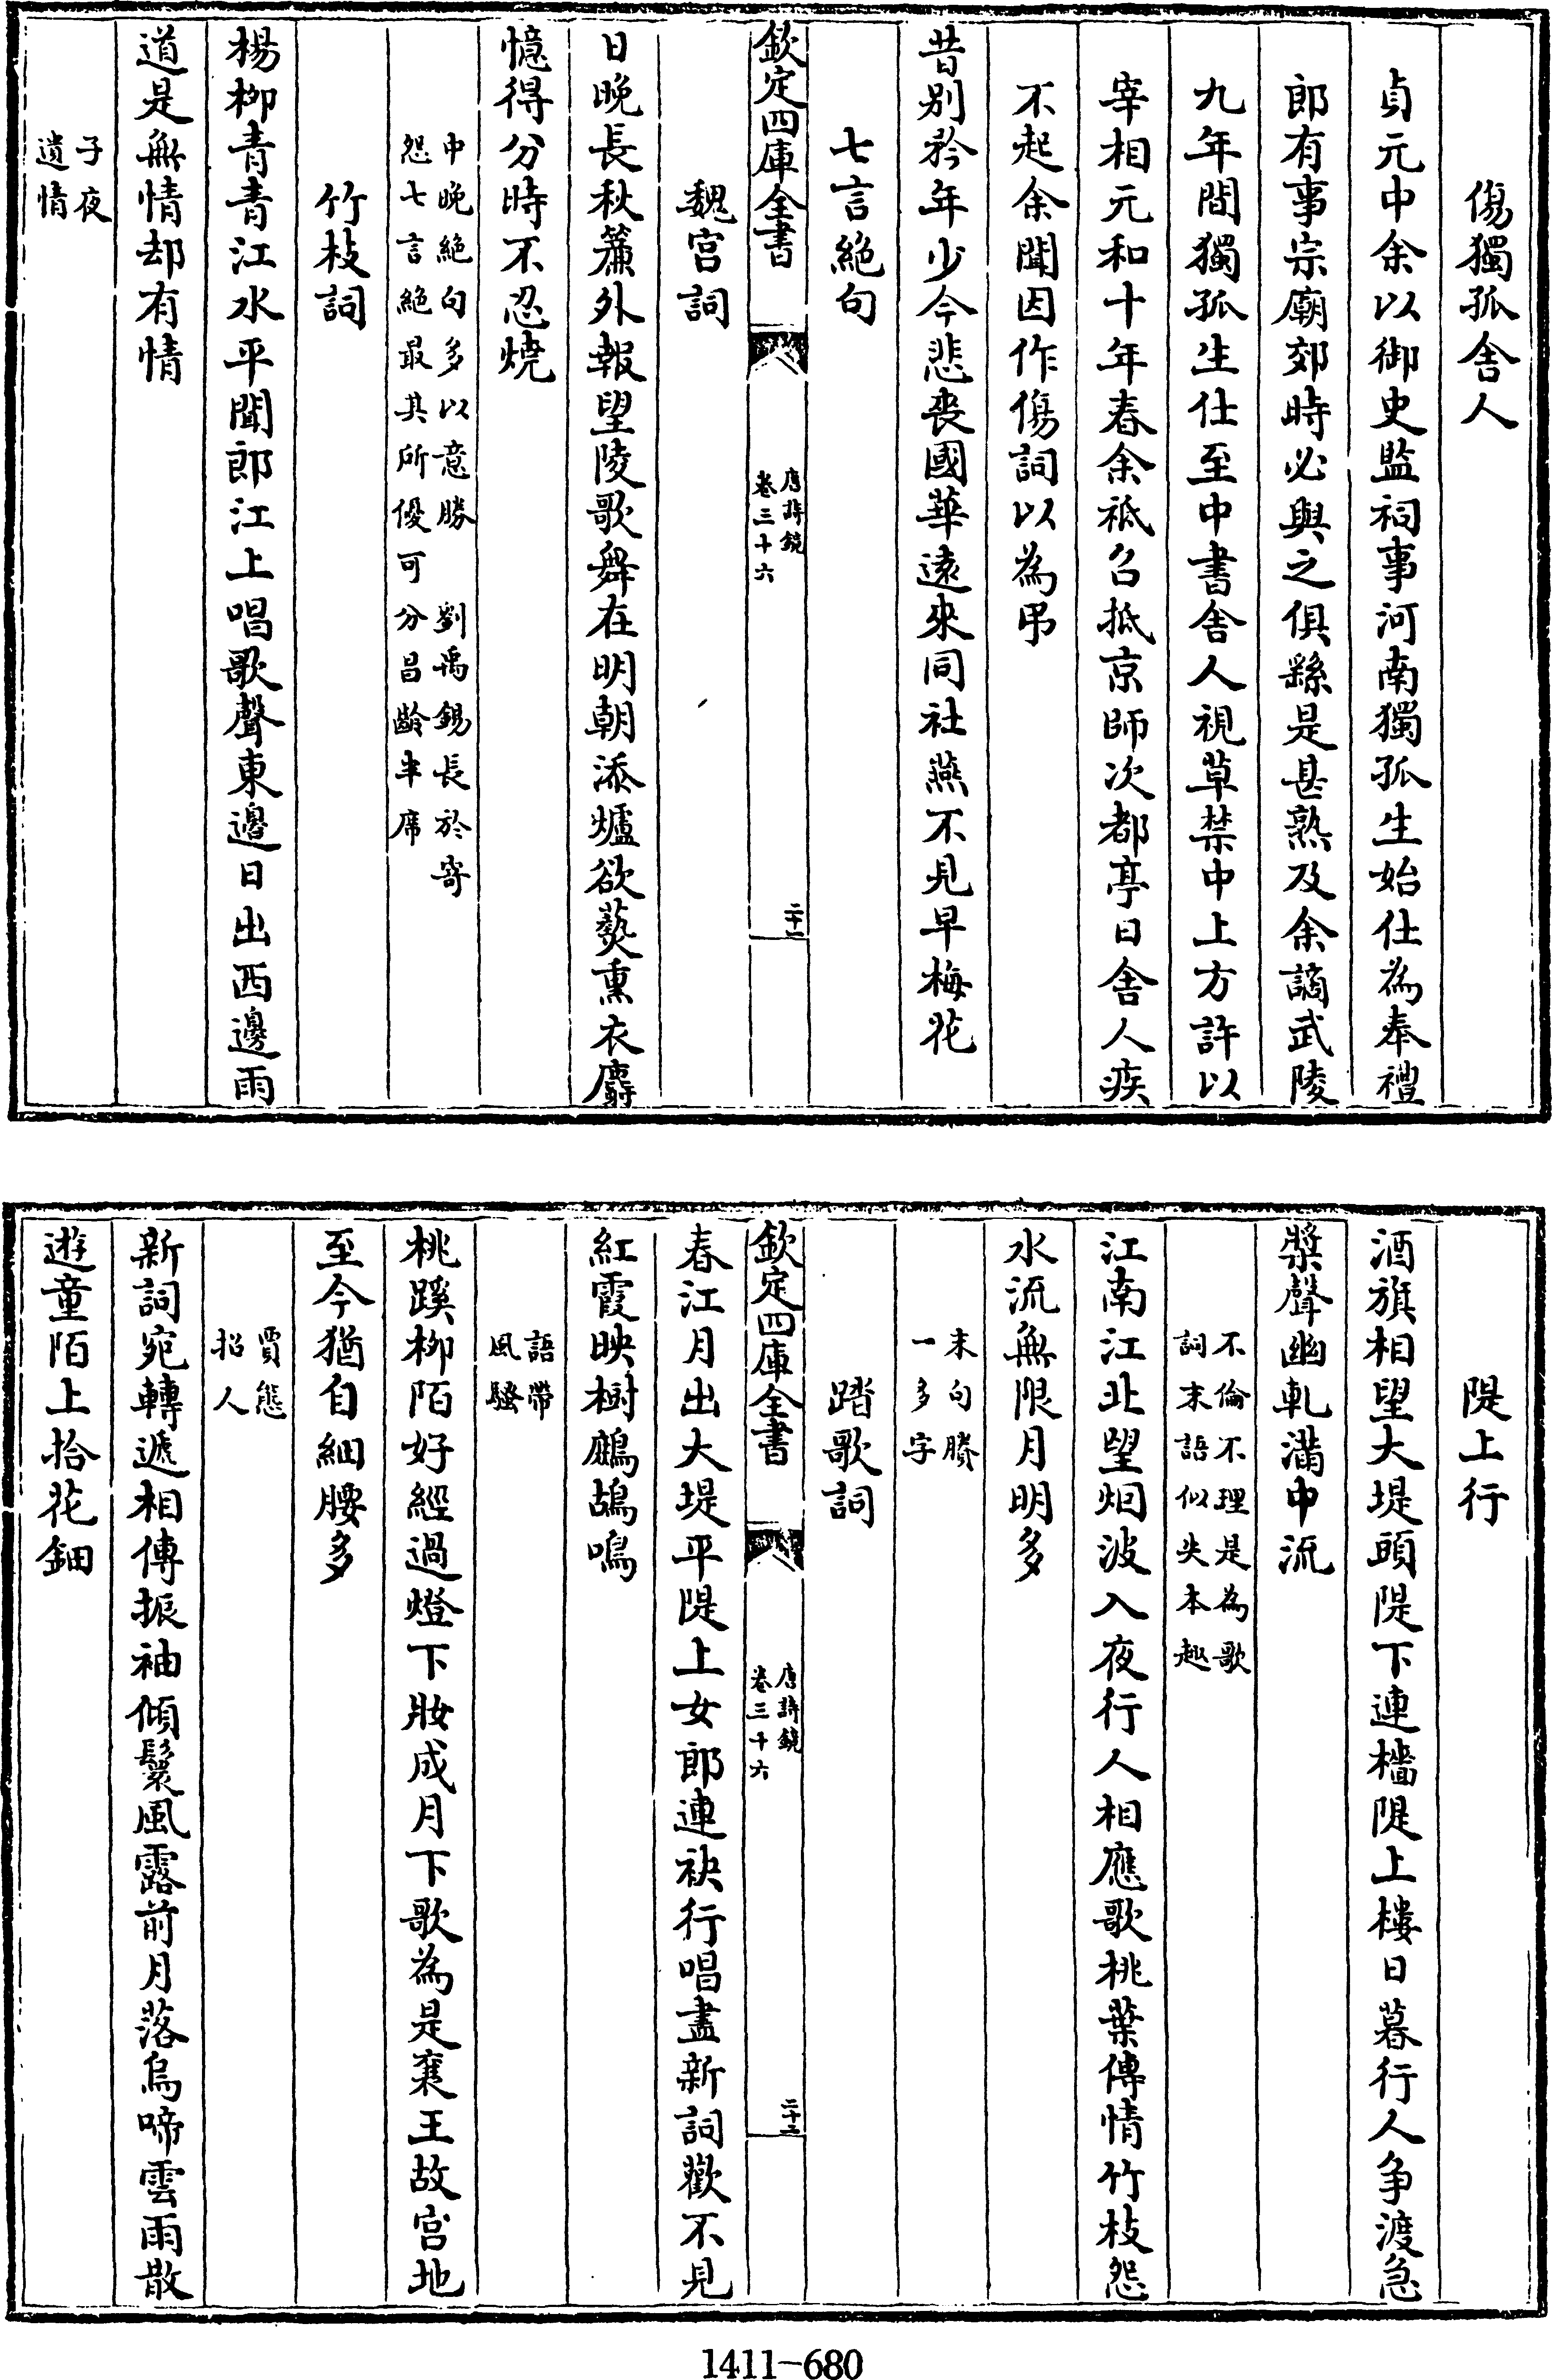 傷獨孤舍人
貞元中余以御史監祠事河南獨孤生始仕為奉禮
郎有事宗廟郊時必與之俱繇是甚熟及余謫武陵
九年間獨孤生仕至中書舍人視草禁中上方許以
宰相元和十年春余祗召抵京師次都亭日舍人疾
不起余聞因作傷詞以為弔
昔別矜年少今悲喪國華遠來同社燕不見早梅花
七言絶句
欽定四庫全書
唐詩鏡
卷三十六
二十一
魏宫詞
日晚長秋簾外報望陵歌舞在明朝添爐欲爇熏衣麝
憶得分時不忍燒
中晚絶句多以意勝 劉禹錫長於寄
怨七言絶最其所優可分昌齡半席
竹枝詞
楊柳青青江水平聞郎江上唱歌聲東邊日出西邊雨
道是無情却有情
子夜
遺情
隄上行
酒旗相望大堤頭隄下連檣隄上樓日暮行人争渡急
槳聲幽軋滿中流
不倫不理是為歌
詞末語似失本趣
江南江北望烟波入夜行人相應歌桃葉傳情竹枝怨
水流無限月明多
末句賸
一多字
踏歌詞
欽定四庫全書
唐詩鏡
卷三十六
二十二
春江月出大堤平隄上女郎連袂行唱盡新詞歡不見
紅霞映樹鷓鴣鳴
語帶
風騷
桃蹊柳陌好經過燈下妝成月下歌為是襄王故宫地
至今猶自細腰多
賈態
招人
新詞宛轉遞相傳振袖傾鬟風露前月落烏啼雲雨散
遊童陌上拾花鈿
1411-680